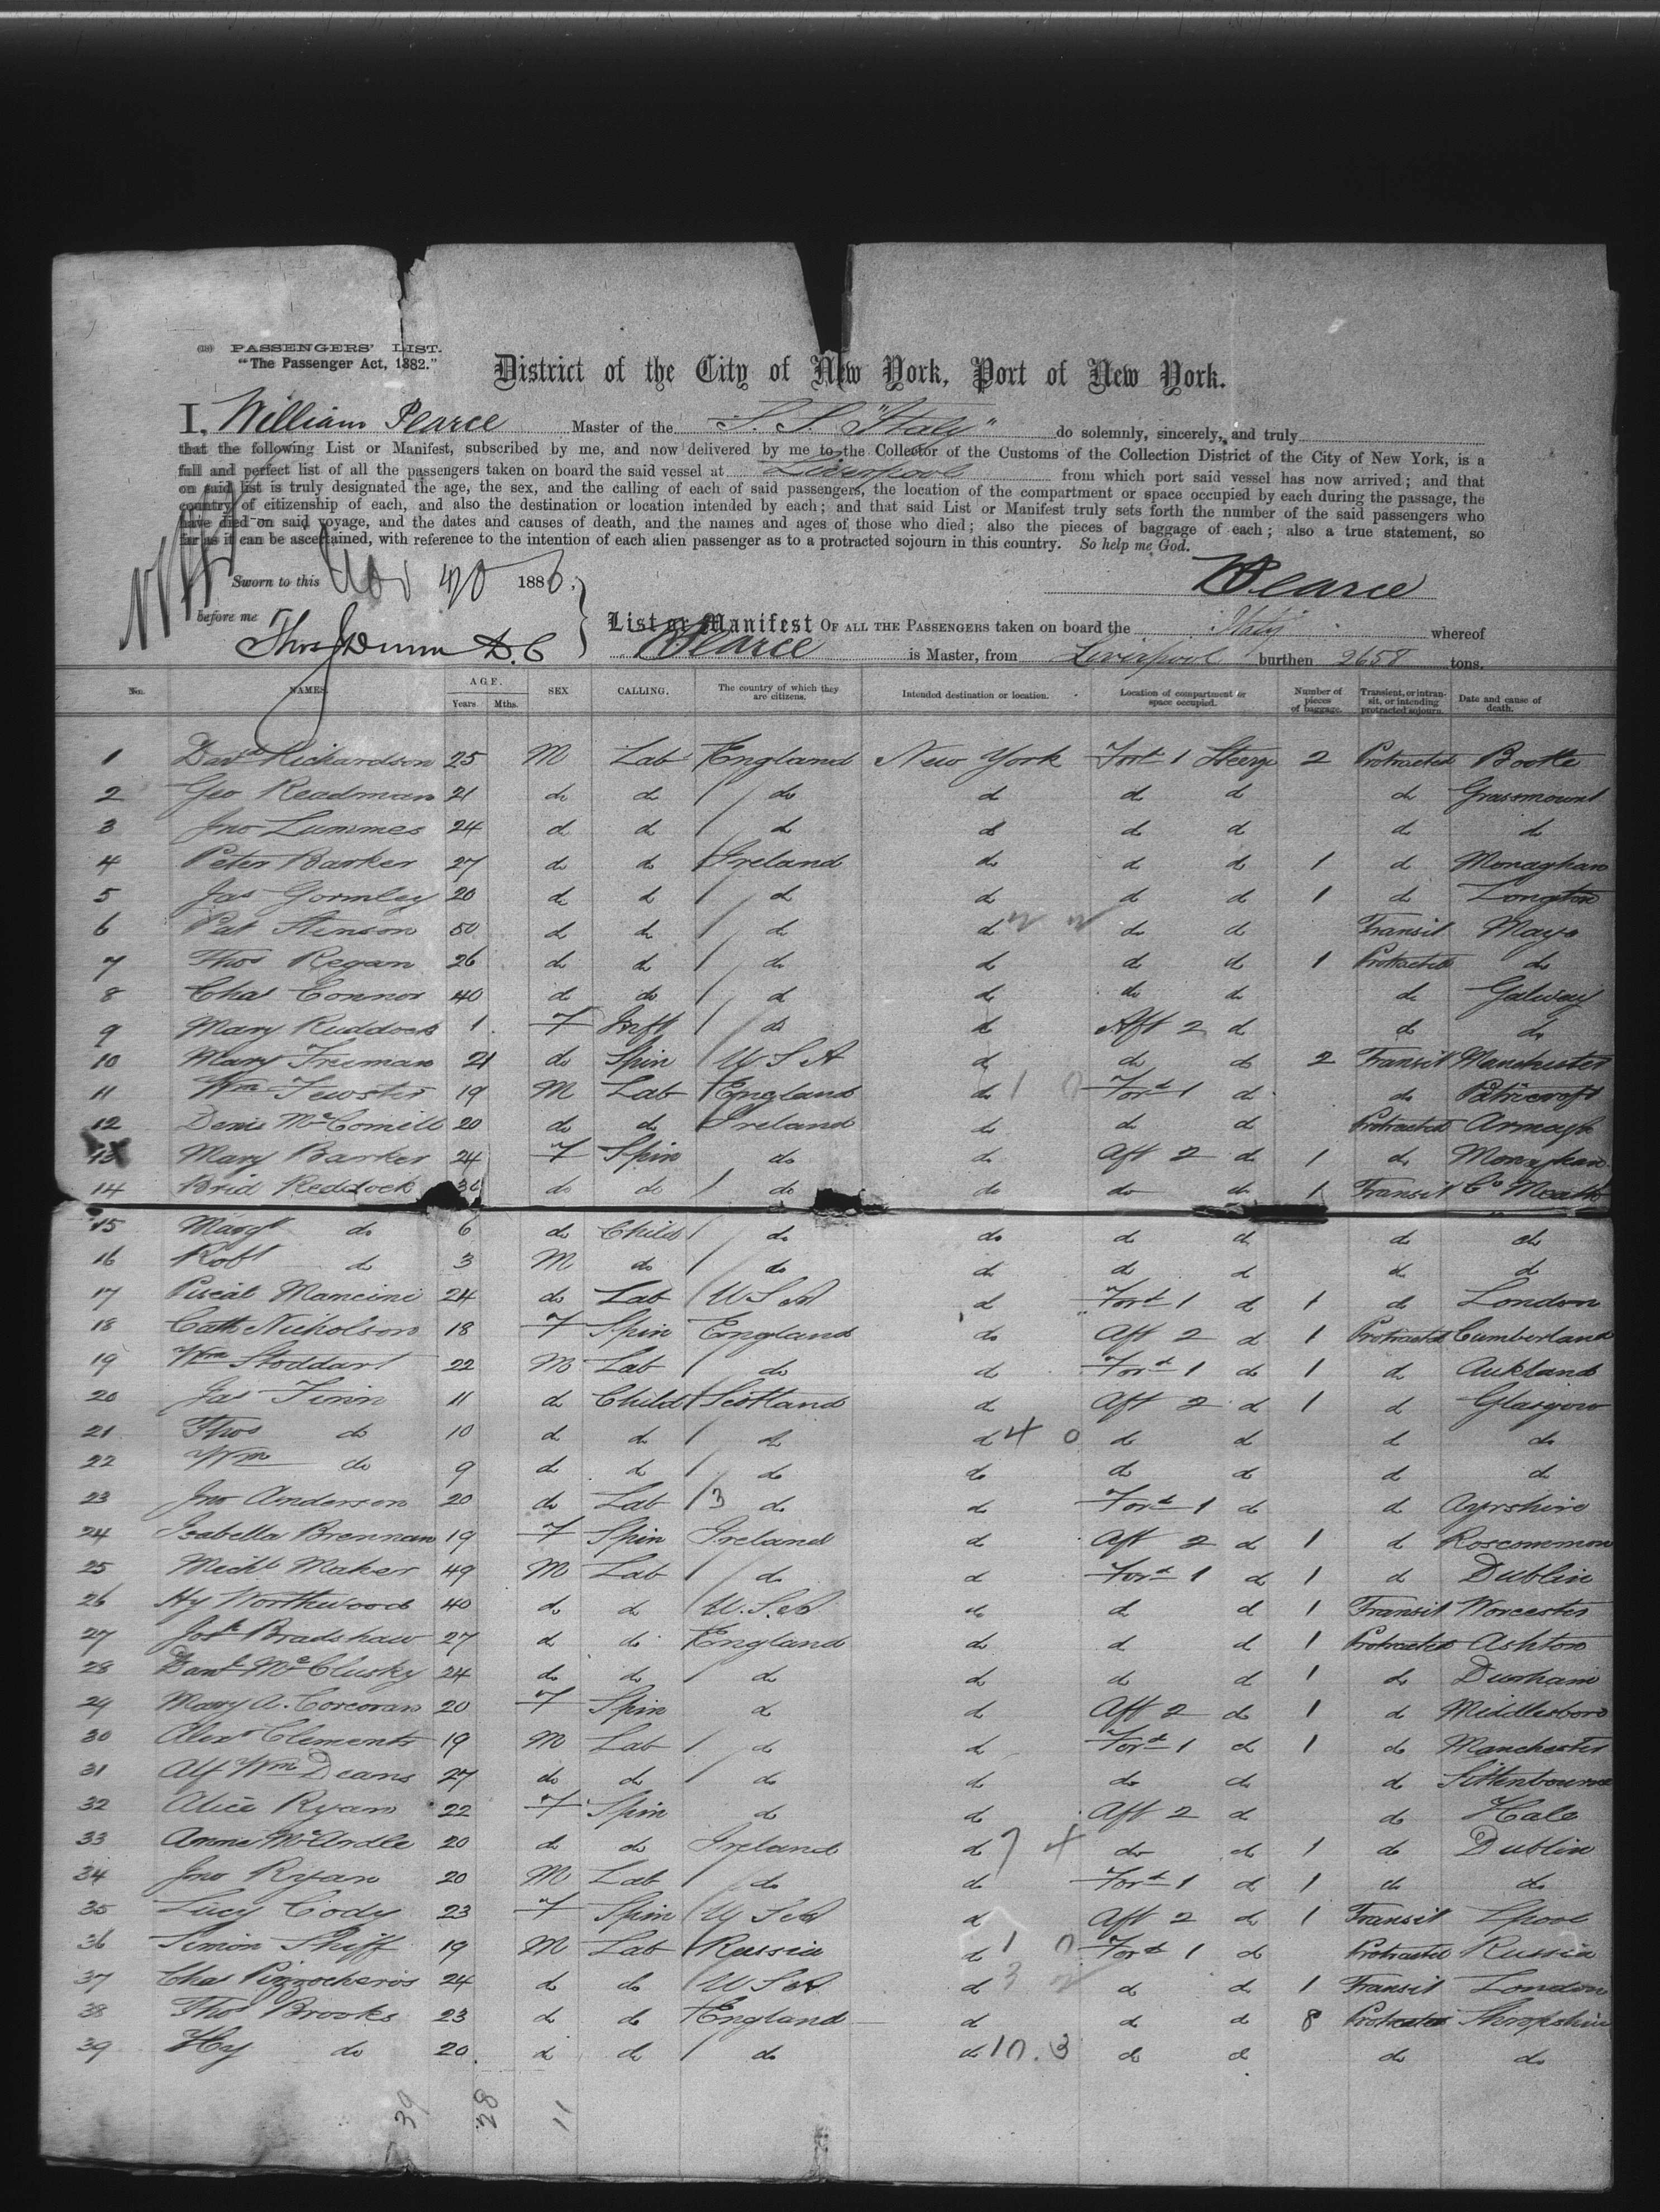 (18) PASSENGERS' LIST.
"The Passenger Act, 1882."
District of the City of New York, Port of New York.
I, William Pearce Master of the S. S. "Italy" do solemnly, sincerely, and truly
that the following List or Manifest, subscribed by me, and now delivered by me to the Collector of the Customs of the Collection District of the City of New York, is a
full and perfect list of all the passengers taken on board the said vessel at Liverpool from which port said vessel has now arrived; and that
on said list is truly designated the age, the sex, and the calling of each of said passengers, the location of the compartment or space occupied by each during the passage, the
country of citizenship of each, and also the destination or location intended by each; and that said List or Manifest truly sets forth the number of the said passengers who
have died on said voyage, and the dates and causes of death, and the names and ages of those who died; also the pieces of baggage of each; also a true statement, so
far as it can be ascertained, with reference to the intention of each alien passenger as to a protracted sojourn in this country. So help me God.
Sworn to this 1886.
WPearce
before me
Thos J Dunn D.C
List or Manifest OF ALL THE PASSENGERS taken on board the Italy whereof
WPearce is Master, from Liverpool burthen 2658 tons.
No. NAMES. AGE. Years Mths. SEX CALLING. The country of which they are citizens. Intended destination or location. Location of compartment or space occupied. Number of pieces of baggage. Transient, or in transit, or intending protracted sojourn. Date and cause of death.
1 Davd Richardson 25 M Lab England New York Ford 1 Steerge 2 Protracted Bootle
2 Geo Readman 21 do do do do do do do Grassmount
3 Jno Lummes 24 do do do do do do do do
4 Peter Barker 27 do do Ireland do do do 1 do Monaghan
5 Jas Gormley 20 do do do do do do 1 do Longton
6 Pat Stenson 50 do do do do do do Transit Mayo
7 Thos Regan 26 do do do do do do 1 Protracted do
8 Chas Connor 40 do do do do do do do Galway
9 Mary Ruddock 1 F Inft do do Aft 2 do do do
10 Mary Freeman 21 do Spin U S A do do do 2 Transit Manchester
11 Wm Fewster 19 M Lab England do 1 0 Ford 1 do do Patricroft
12 Denis McComill 20 do do Ireland do do do Protracted Armagh
13 Mary Barker 24 F Spin do do Aft 2 do 1 do Monaghan
14 Brid Reddock 36 do do do do do do 1 Transit Co Meath
15 Margt do 6 do Child do do do do do do
16 Robt do 3 M do do do do do do do
17 Piscal Mancini 24 do Lab U S A do Ford 1 do 1 do London
18 Cath Nicholson 18 F Spin England do Aft 2 do 1 Protracted Cumberland
19 Wm Stoddart 22 M Lab do do Ford 1 do 1 do Aukland
20 Jas Finin 11 do Child Scotland do Aft 2 do 1 do Glasgow
21 Thos do 10 do do do do 4 0 do do do do
22 Wm do 9 do do do do do do do do
23 Jno Anderson 20 do Lab 3 do do Ford 1 do do Ayrshire
24 Isabella Brennan 19 F Spin Ireland do Aft 2 do 1 do Roscommon
25 Michl Maher 49 M Lab do do Ford 1 do 1 do Dublin
26 Hy Worthwood 40 do do U.S.A do do do 1 Transit Worcester
27 Josh Bradshaw 27 do do England do do do 1 Protracted Ashton
28 Danl McClusky 24 do do do do do do 1 do Durham
29 Mary A. Corcoran 20 F Spin do do Aft 2 do 1 do Middlesboro
30 Alexr Clements 19 M Lab do do Ford 1 do 1 do Manchester
31 Alf Wm Deans 27 do do do do do do do Sittenbourne
32 Alice Ryan 22 F Spin do do Aft 2 do do Hale
33 Annie McArdle 20 do do Ireland do 7 4 do do 1 do Dublin
34 Jno Ryan 20 M Lab do do Ford 1 do 1 do do
35 Lucy Cody 23 F Spin U S A do Aft 2 do 1 Transit Lpool
36 Simon Shiff 19 M Lab Russia do 1 0 Ford 1 do Protracted Russia
37 Chas Pizzocheros 24 do do U S A do 3 2 do do 1 Transit London
38 Thos Brooks 23 do do England do do do 8 Protracted Shropshire
39 Hy do 20 do do do do 10.3 do do do do
39 28 11